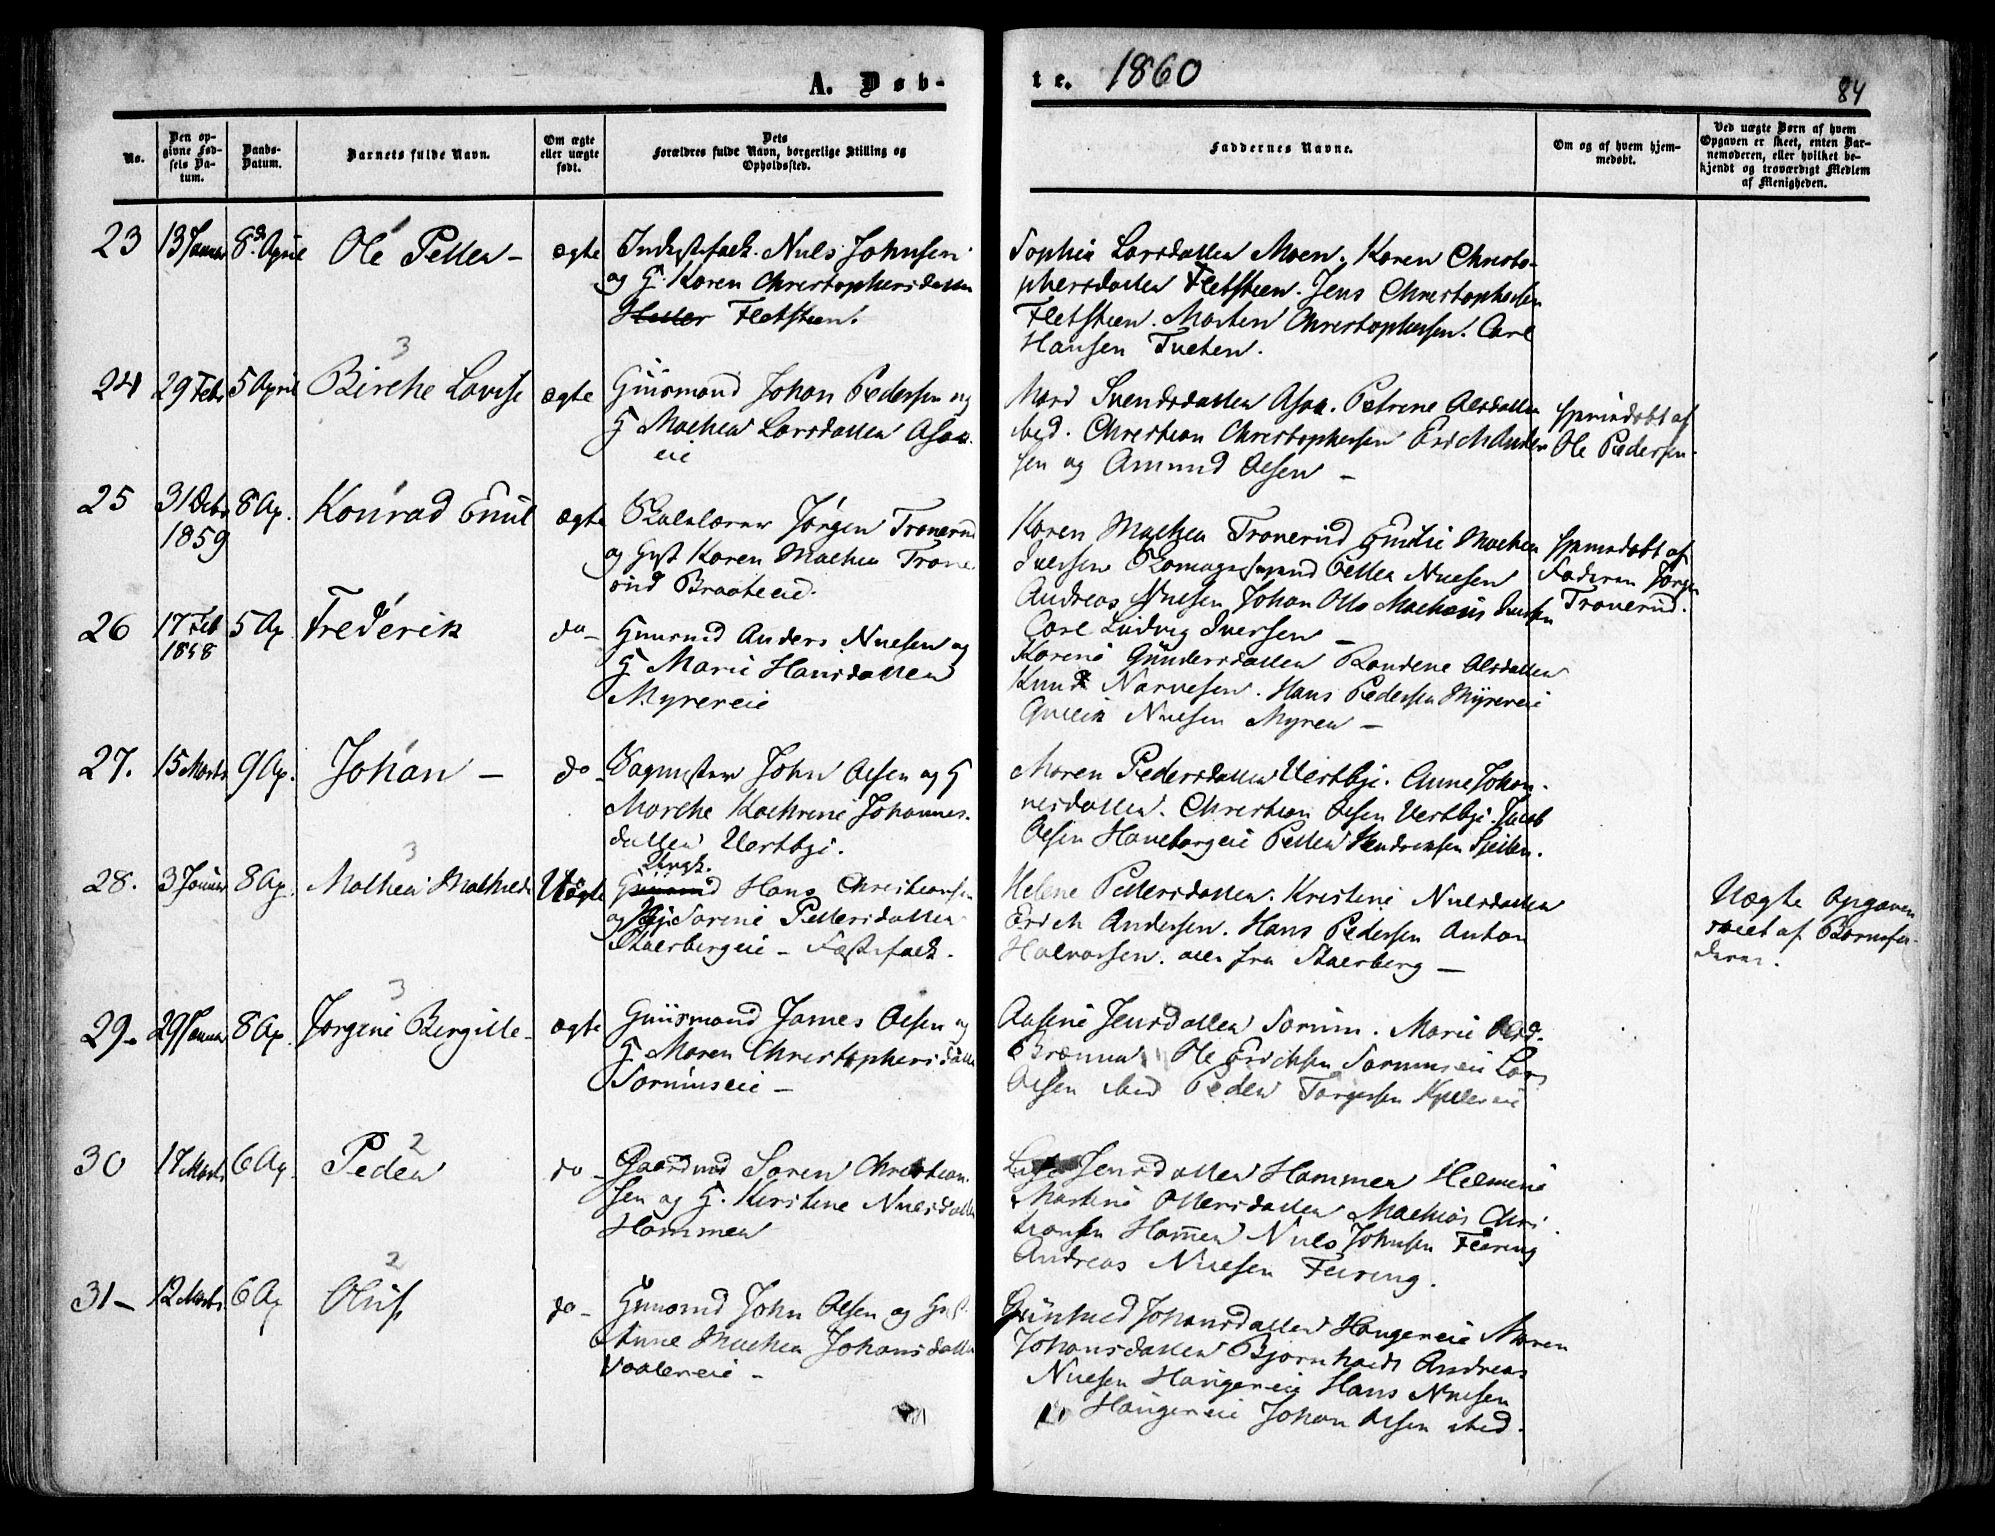 A. Døb-
te. 1860
84
No.
Den op-
givne Fød-
sels Da-
tum.
Daabs-
Datum.
Barnets fulde Navn.
Om ægte
eller uægte
født.
Dets
Forældres fulde Navn, borgerlige Stilling og
Opholdssted.
Faddernes Navne.
Om og af hvem hjem-
medøbt.
Ved uægte Børn af hvem
Opgaven er skeet, enten Bar-
nemoderen, eller hvilket be-
kjendt og troværdigt Medlem
af Menigheden.
23 13 Januar 8de April Ole Petter - ægte Nils Johnsen
og G. Karen Christophersdatter
Fletsteen.
Sophia Larsdatter Moen. Karen Christo-
phersdatter Fletsteen. Jens Christophersen
Fletsteen. Morten Christophersen. Carl
Hansen Tveten.
3
24 29 Febr 5 April Birthe Lovise ægte Johan Pedersen og
G Mathea Larsdatter
eie
Svendsdatter Petrine Olsdatter
ibid. Christian Christophersen Erich Ander
sen og Amund Olsen -
af
Ole Pedersen.
25 31 Debr 8 Ap. Konrad Emil ægte Skolelærer Jørgen Tronerud
1859
og Gust Karen Mathea Trone
rud Braateeie.
Karen Mathea Tronerud Emilie Mathea
Iversen Petter Nilsen
Andreas Nilsen Johan Otto Mathias
Carl Ludvig Iversen -
af
Faderen Jørgen
Tronerud.
26 17 Feb 5 Ap Frederik do - Anders Nilsen og
G Marie Hansdatter
Myrereie
Karine Gundersdatter Randene Olsdatter
Knud Narvesen. Hans Pedersen Myrereie
Gullik Nilsen Myren -
27. 15 Marts 9 Ap. Johan - do - John Olsen og G
Marthe Kathrine Johannes-
datter Vestbye.
Maren Pedersdatter Vestbye. Anne Johan-
nesdatter. Christian Olsen Vestbye. Jacob
Olsen Haneborgeie Petter Hendriksen
3
28. 3 Januar 8 Ap. Mathea Mathilde Uægte Ungk.
Hans Christiansen
og Sorine Pettersdatter
Skaerbergeie -
Helene Pettersdatter. Kristine Nilsdatter
Erich Andersen. Hans Pedersen Anton
Halvorsen. alle fra Skaerberg -
Uægte Opgaven
skeet af Barnefa-
deren.
3
29- 29 Januar 8 Ap. Jørgine Bergitte - ægte James Olsen og
G Maren Christophersdatter
Sorumseie -
Aasine Jensdatter Sorum. Marie
Ole Erichsen Sorumseie Lars
Olsen ibid Peder Torgersen
2
30 17 Marts 6 Ap Peder do - Gaardmd Soren Christian-
sen og G. Kirstine Nilsdatter
Hammer
Jensdatter Hammer Helmine
Martine Ottersdatter Mathias Chri-
stiansen Hamer Nils Johnsen Feiring
Andreas Nilsen Feiring.
2
31- 12 Marts 6 Ap do - John Olsen og Gust
Anne Mathea Johansdatter
Vaalereie -
Gunhild Johansdatter Haugereie Maren
Johansdatter Andreas
Nilsen Haugereie Hans Nilsen
Haugereie Johan Olsen ibid.